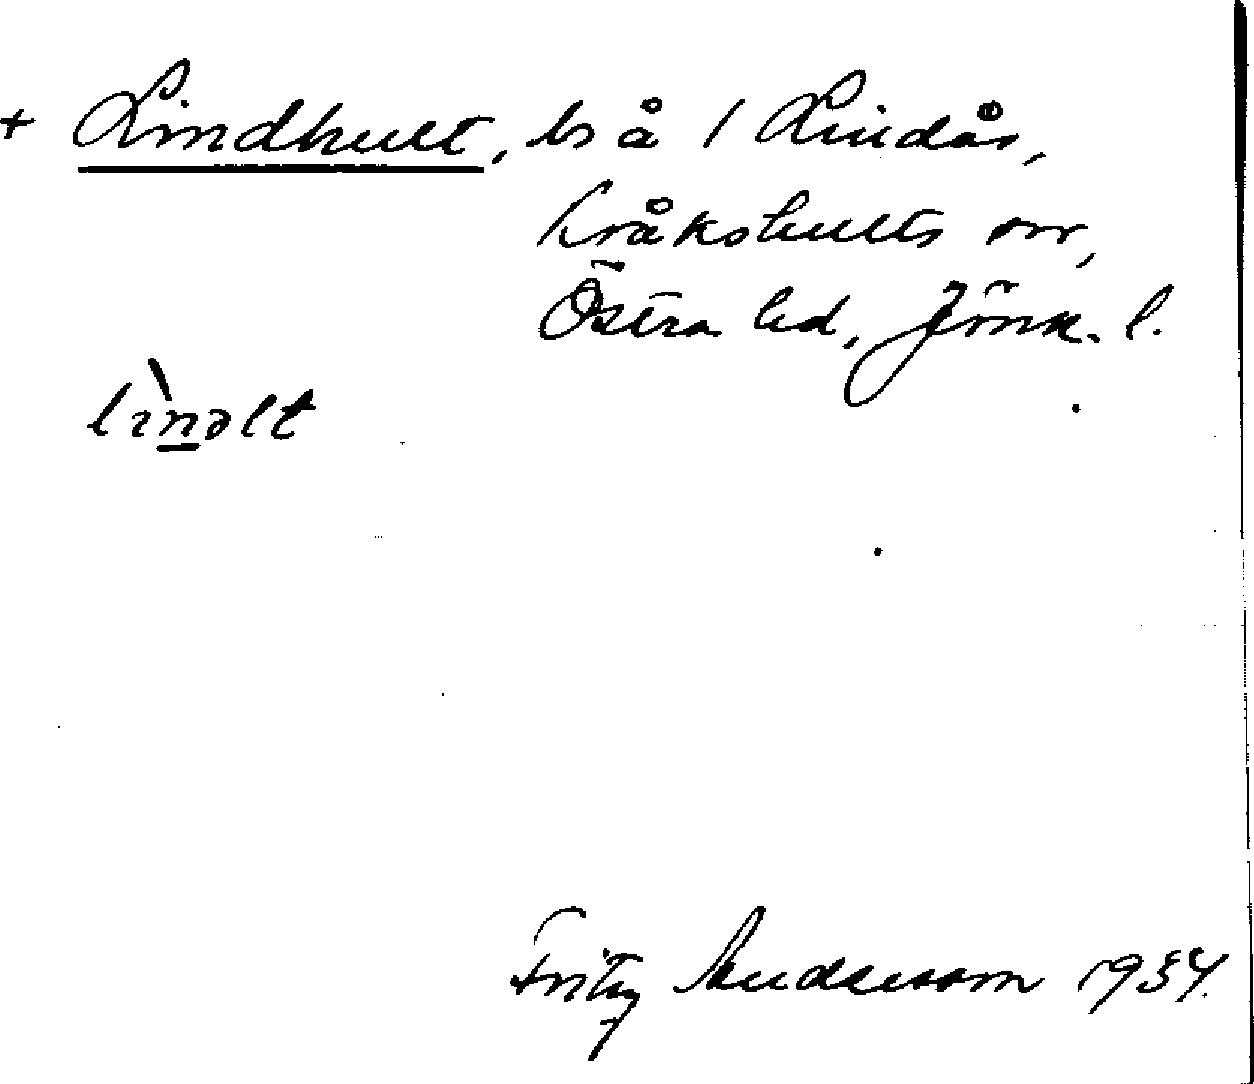 + Lindhult, ls å 1 Lindås,
Kråkshults sn,
Östra hd, Jönk. l.
lìnəlt
Fritz Andersson 1934.